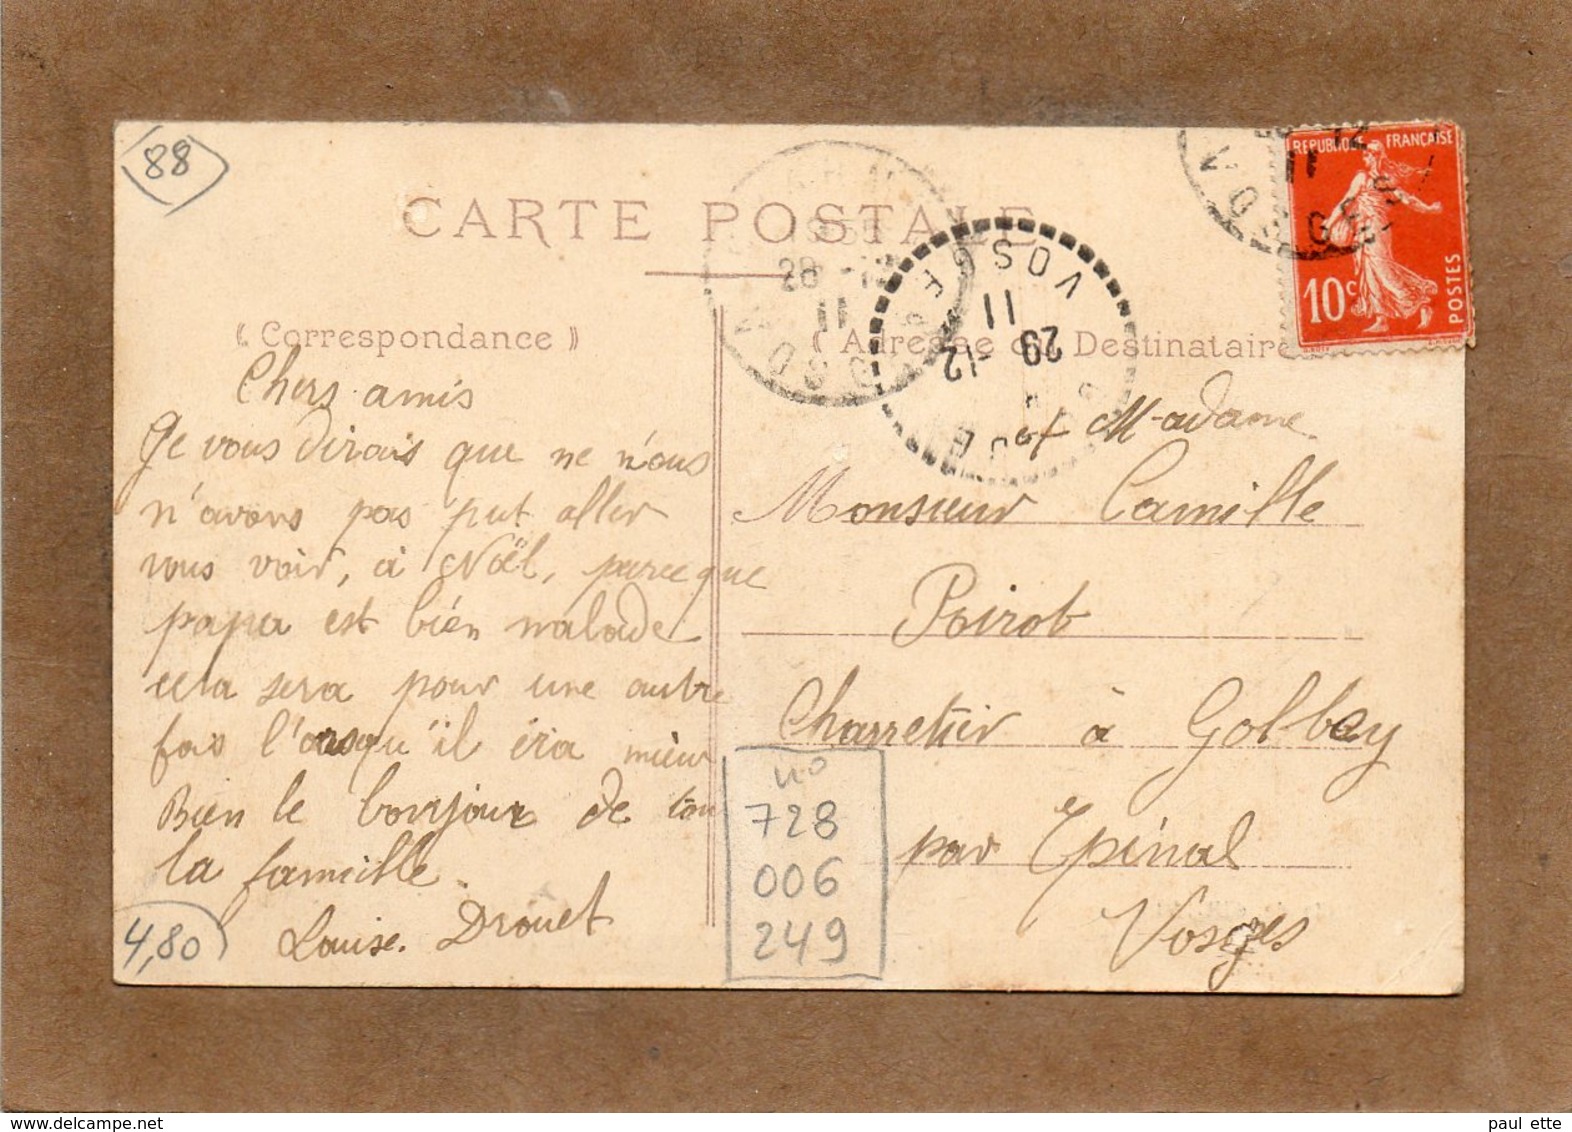 88
CARTE POSTALE
28 -12
11
VOSGES
11
29 -12
VOSGES
11
REPUBLIQUE FRANÇAISE
10c
POSTES
« Correspondance »
Adresse Destinataire
Chers amis
Je vous dirais que ne n'ous
n'avons pas put aller
vous voir, à Noël, parce que
papa ést bién malade
cela sera pour une autre
fois l'orsqu'il ira mieux
Bien le bonjour de tou
la famille.
Louise. Drouet
et M-adame
Monsieur Camille
Poirot
Charretier à Golbey
par Epinal
Vosges
728
006
249
4,80
paul ette